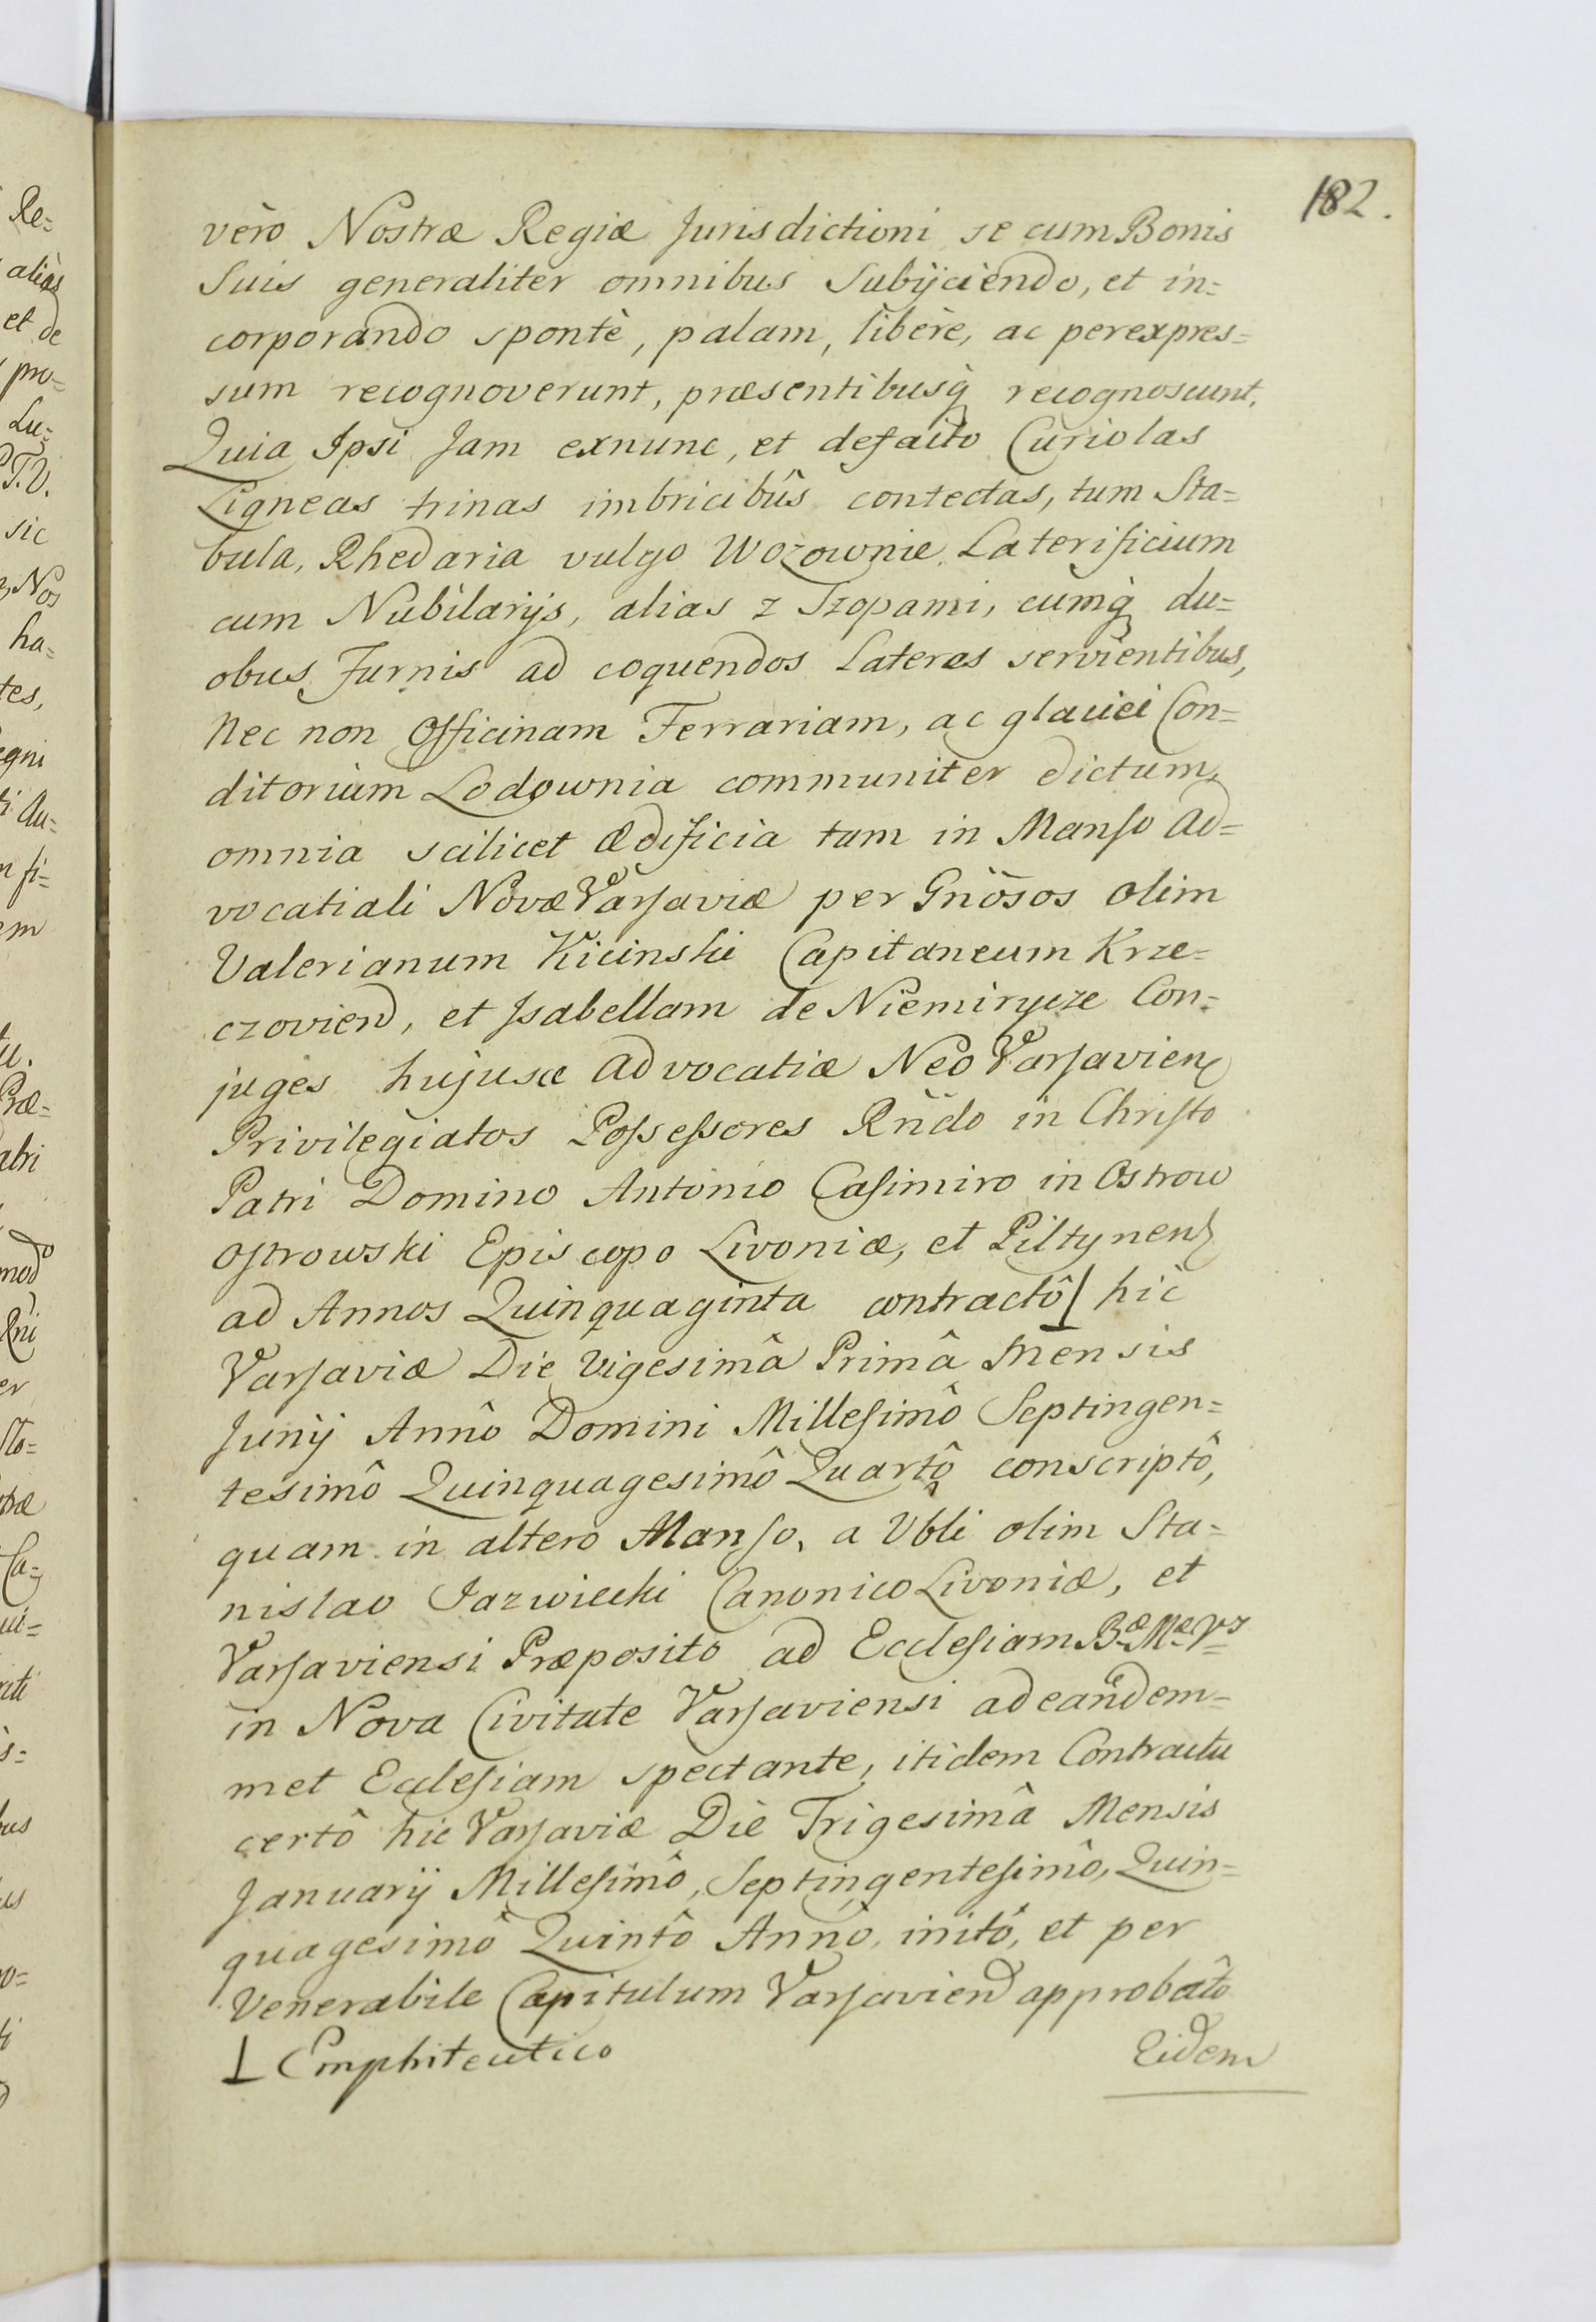 182.
vèro Nostræ Regiæ Jurisdictioni se cum Bonis
Suis generaliter omnibus Subijciendo, et in=
corporando spontè, palam, libère, ac perexpres=
sum recognoverunt, præsentibusq̃ recognoscunt.
Quia Ipsi Jam exnunc, et defacto Curiolas
Ligneas trinas imbricibûs contectas, tum Sta=
bula, Rhedaria vulgo Wozownie Laterificium
cum Nubilarijs, alias z Szopami, cumq̃ du=
obus Furnis ad coquendos Lateres servientibus,
Nec non Officinam Ferrariam, ac glaciei Con=
ditorium Lodownia communiter dictum,
omnia scilicet Ædificia tam in Manso Ad=
vocatiali Novæ Varsaviæ per Gnõsos olim
Valerianum Kicinski Capitaneum Krze=
czovien, et Isabellam de Niemirycze Con=
juges hujusce Advocatiæ Neo Varsavien
Privilegiatos Possessores Rñdo in Christo
Patri Domino Antonio Casimiro in Ostrow
Ostrowski Episcopo Livoniæ, et Piltynen
ad Annos Quinquaginta contractô ⊥ hic
Varsaviæ Die Vigesimâ Primâ Mensis
Junij Annô Domini Millesimô Septingen=
tesimô Quinquagesimô Quartô conscriptô,
quam in altero Manso, a Vbli olim Sta=
nislao Jazwiecki Canonico Livoniæ, et
Varsaviensi Præposito ad Ecclesiam Bæ Mæ Vs
in Nova Civitate Varsaviensi ad eandem=
met Ecclesiam spectante, itidem Contractu
certô hic Varsaviæ Die Trigesimâ Mensis
Januarij Millesimô, Septingentesimô, Quin=
quagesimô Quintô Annô, initô, et per
Venerabile Capitulum Varsavien approbatô
⊥ Emphiteutico
Eidem